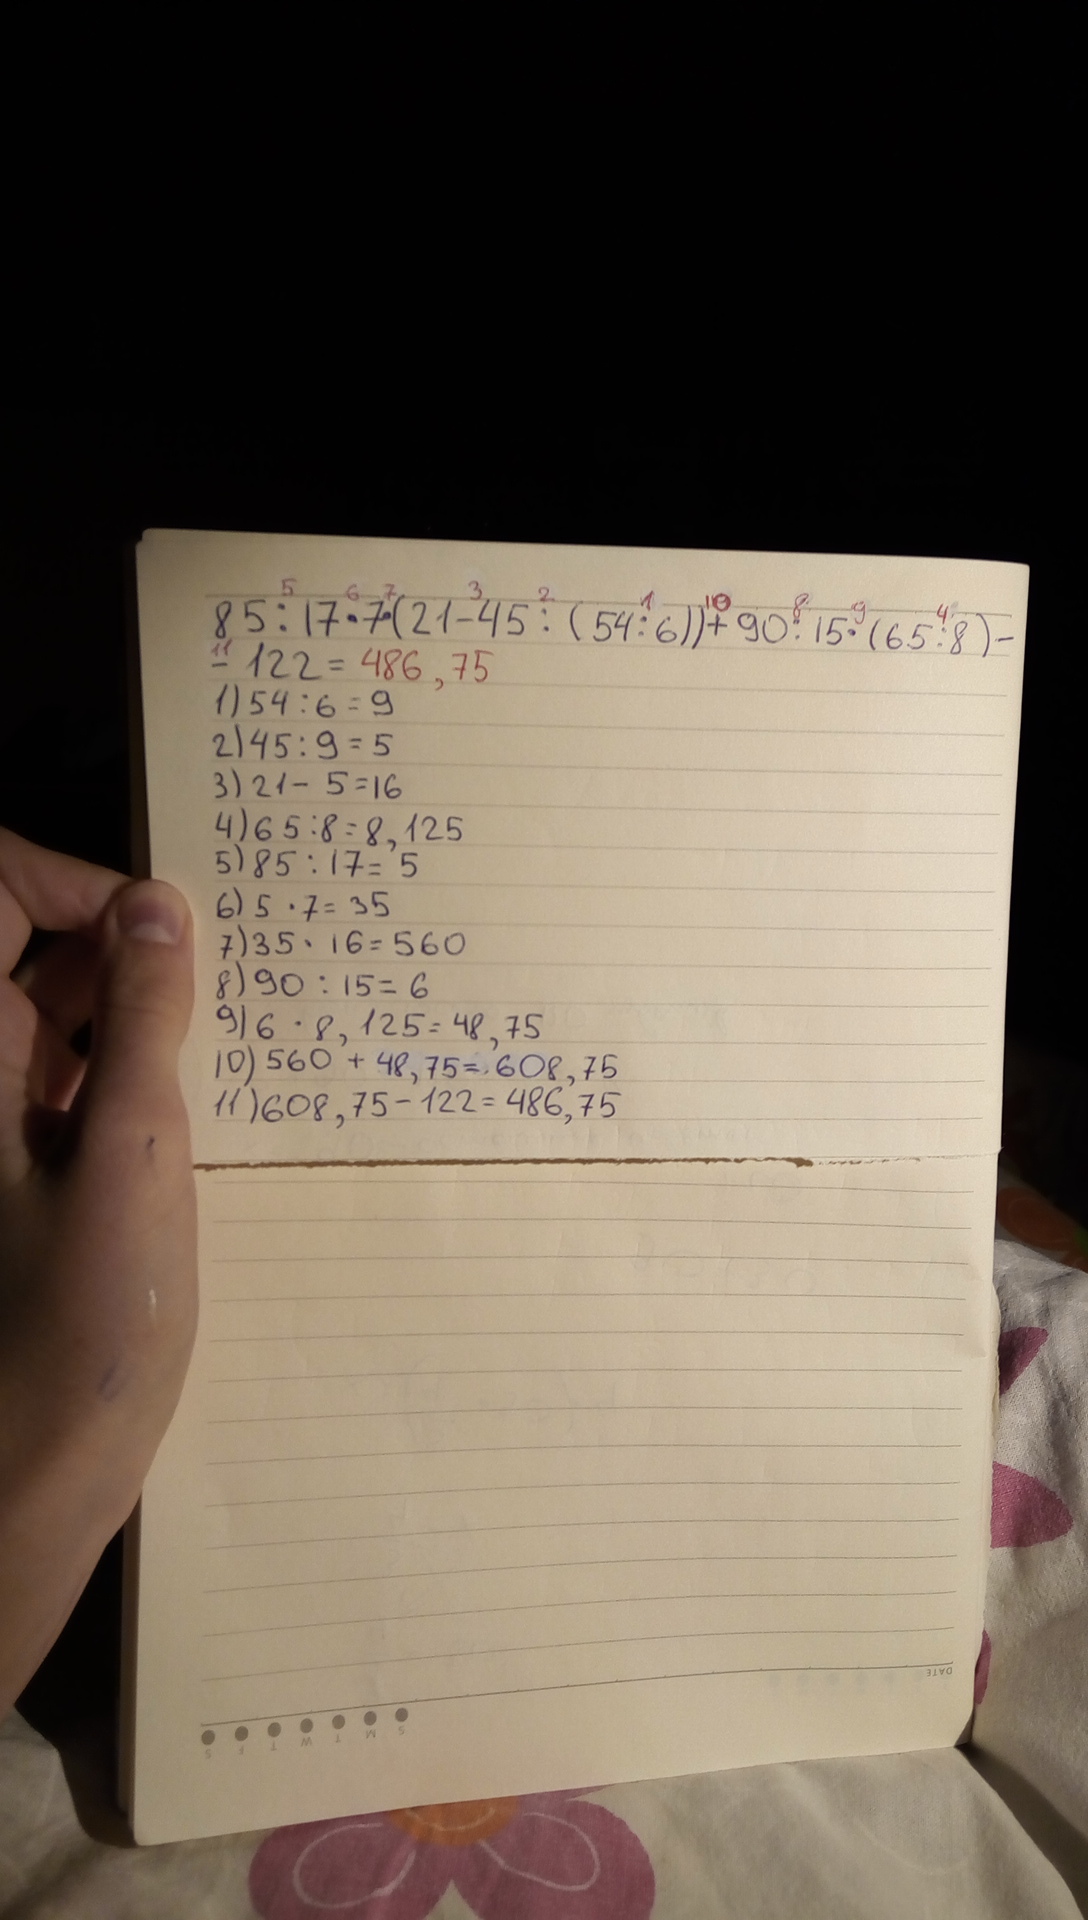 5 6 7 3 2 1 10 8 9 4
85:17·7·(21-45:(54:6))+90:15·(65:8)-
11
- 122 = 486,75
1) 54:6=9
2) 45:9=5
3) 21- 5=16
4) 65:8=8,125
5) 85:17= 5
6) 5 ·7= 35
7) 35· 16=560
8) 90 : 15= 6
9) 6 · 8,125=48,75
10) 560 + 48,75= 608,75
11) 608,75-122=486,75
DATE
S M T W T F S